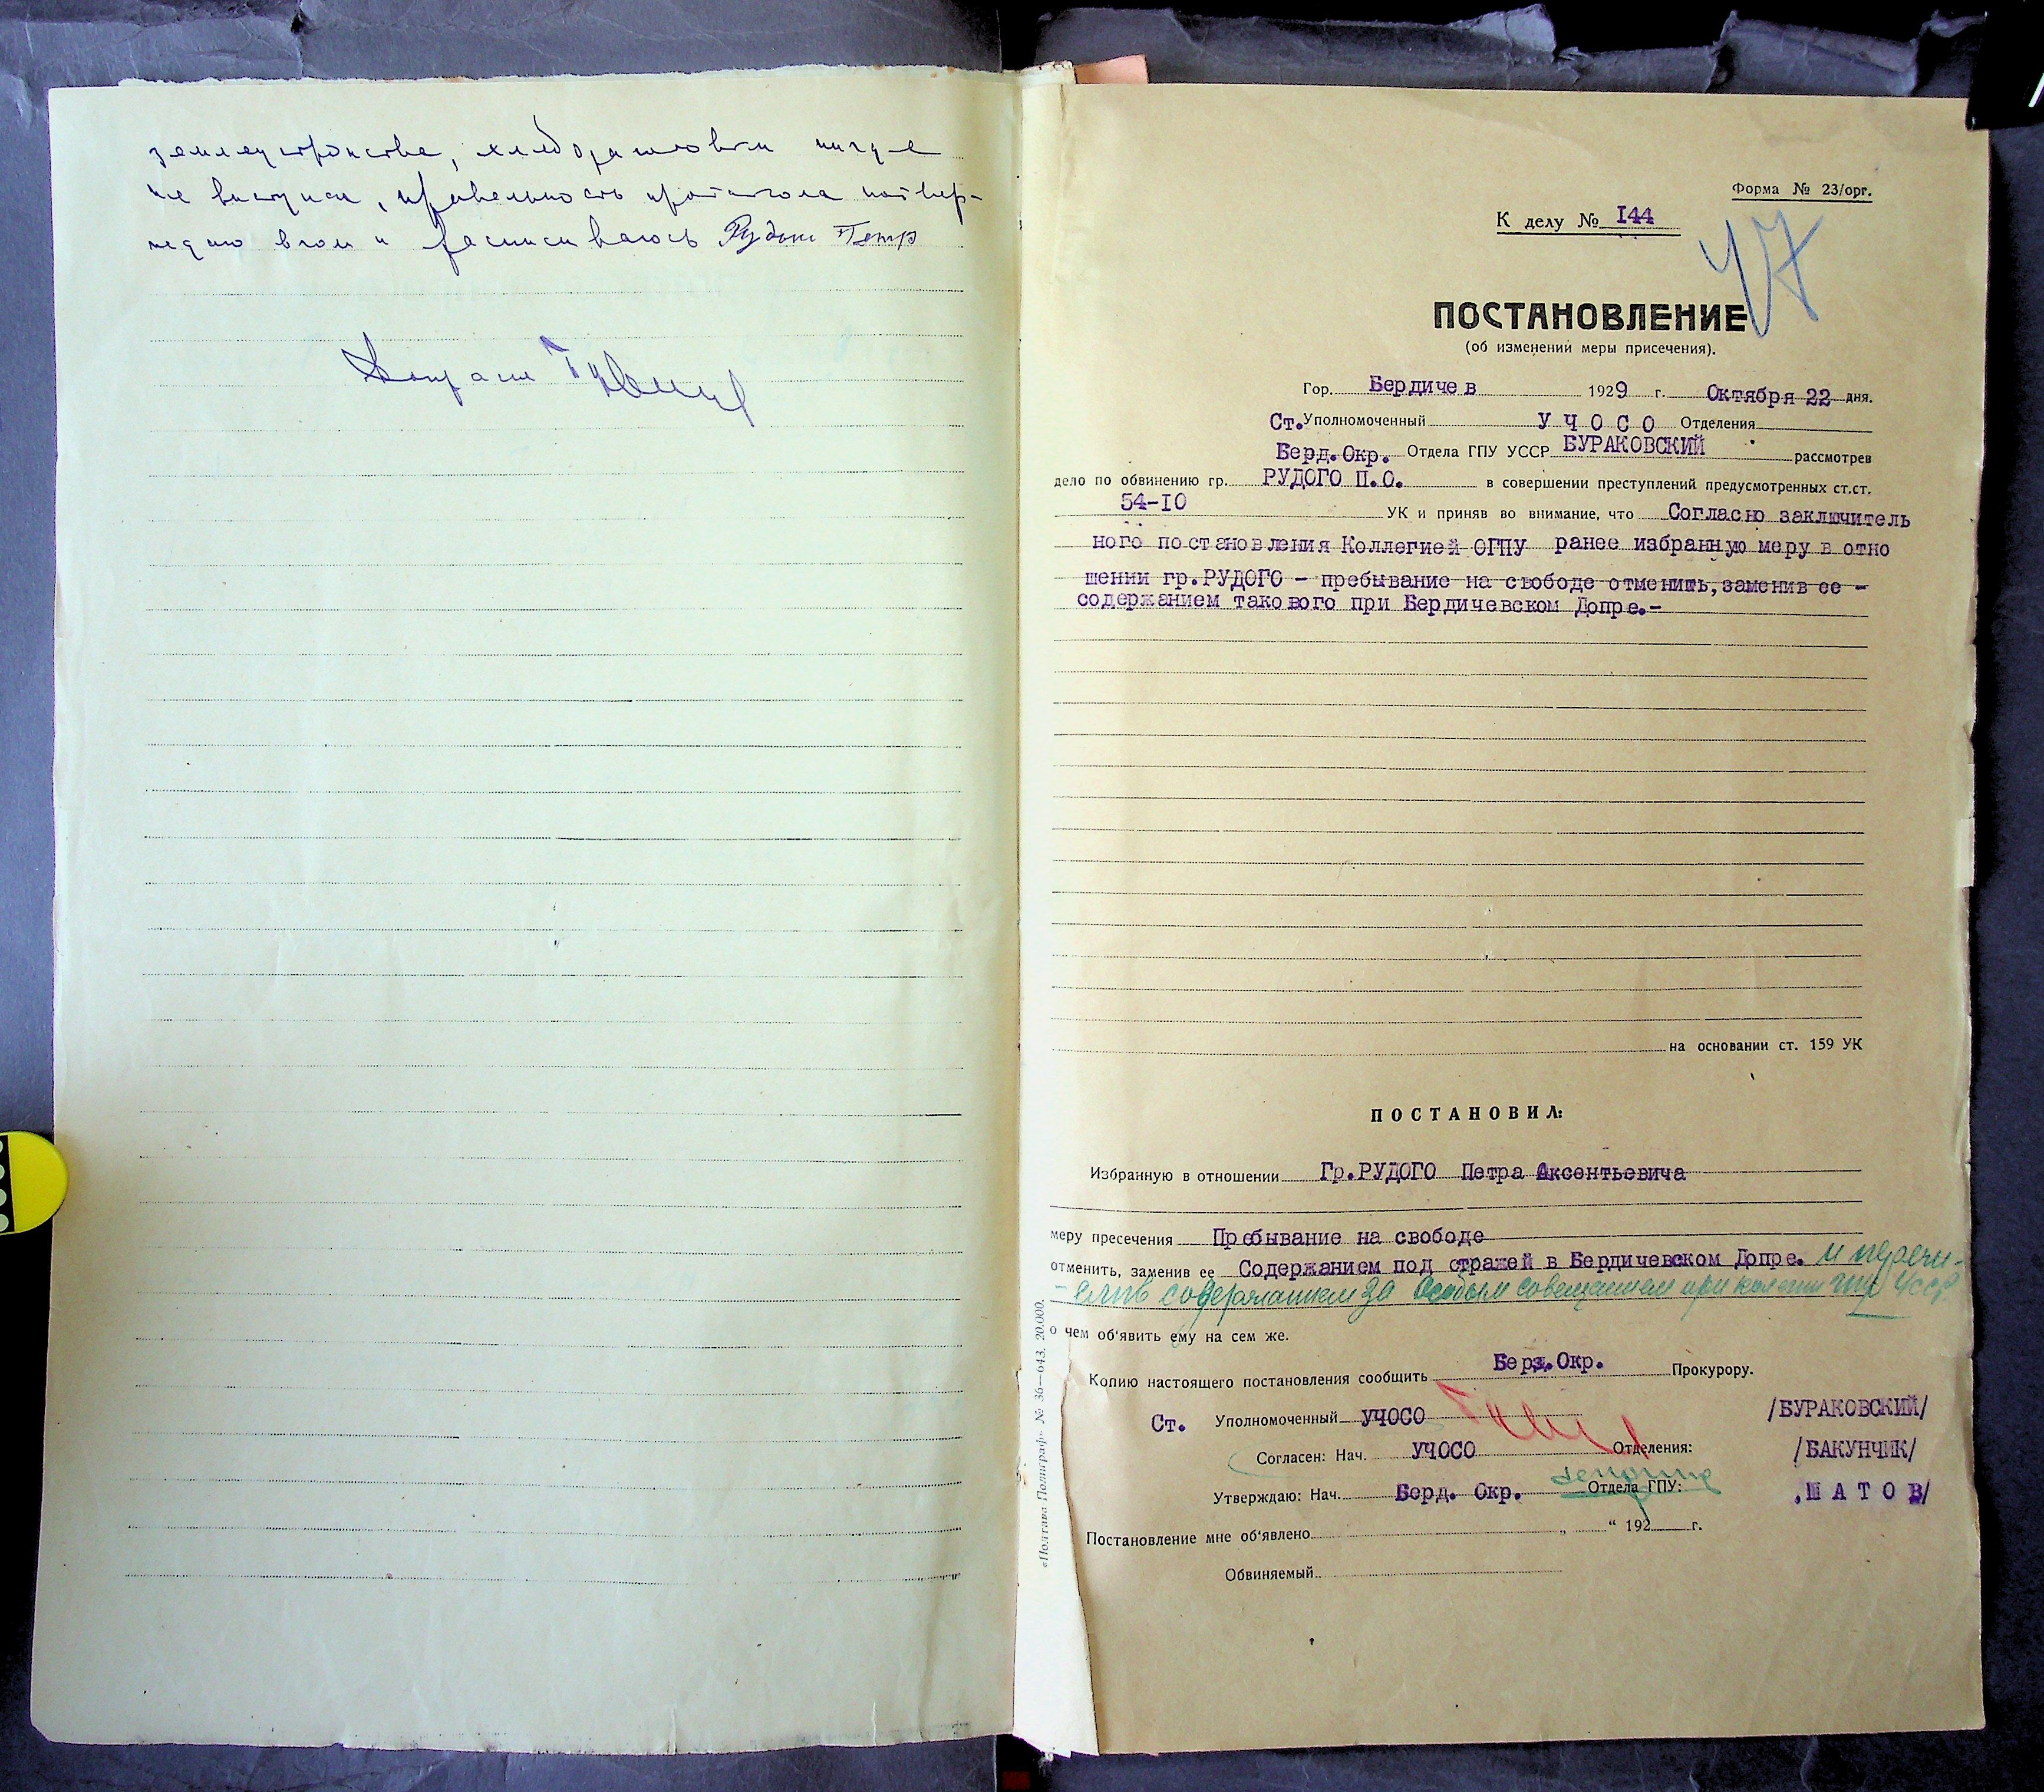 землеустройстве, хлебозаготовки нигде
не виступал, правельность протокола потвер-
ждаю вчом и росписиваюсь Рудый Петр
Допрасил
Форма № 23/орг.
К делу № 144
47
ПОСТАНОВЛЕНИЕ
(об изменений меры присечения).
Гор. Бердичев 1929 г. Октября 22 дня.
Ст. Уполномоченный УЧОСО Отделения
Берд.Окр. Отдела ГПУ УССР БУРАКОВСКИЙ рассмотрев
дело по обвинению гр. РУДОГО П.О. в совершении преступлений предусмотренных ст.ст.
54-10 УК и приняв во внимание, что Согласно заключитель
ного постановления Коллегией ОГПУ ранее избранную меру в отно
шении гр.РУДОГО - пребывание на свободе отменить, заменив ее -
содержанием такового при Бердичевском Допре.-
на основании ст. 159 УК
ПОСТАНОВИЛ:
Избранную в отношении Гр.РУДОГО Петра Аксентьевича
меру пресечения Пребывание на свободе
отменить, заменив ее Содержанием под стражей в Бердичевском Допре. и перечи-
-слив содержанием за Особым совещанием при колегии ГПУ УССР.
о чем об'явить ему на сем же.
Копию настоящего постановления сообщить Берд.Окр. Прокурору.
Ст. Уполномоченный УЧОСО /БУРАКОВСКИЙ/
Согласен: Нач. УЧОСО Отделения: /БАКУНЧИК/
Утверждаю: Нач. Берд. Окр. Отдела ГПУ: /ШАТОВ/
Постановление мне об'явлено „ “ 192 г.
Обвиняемый
«Полтава Полиграф» № 36—643. 20.000.